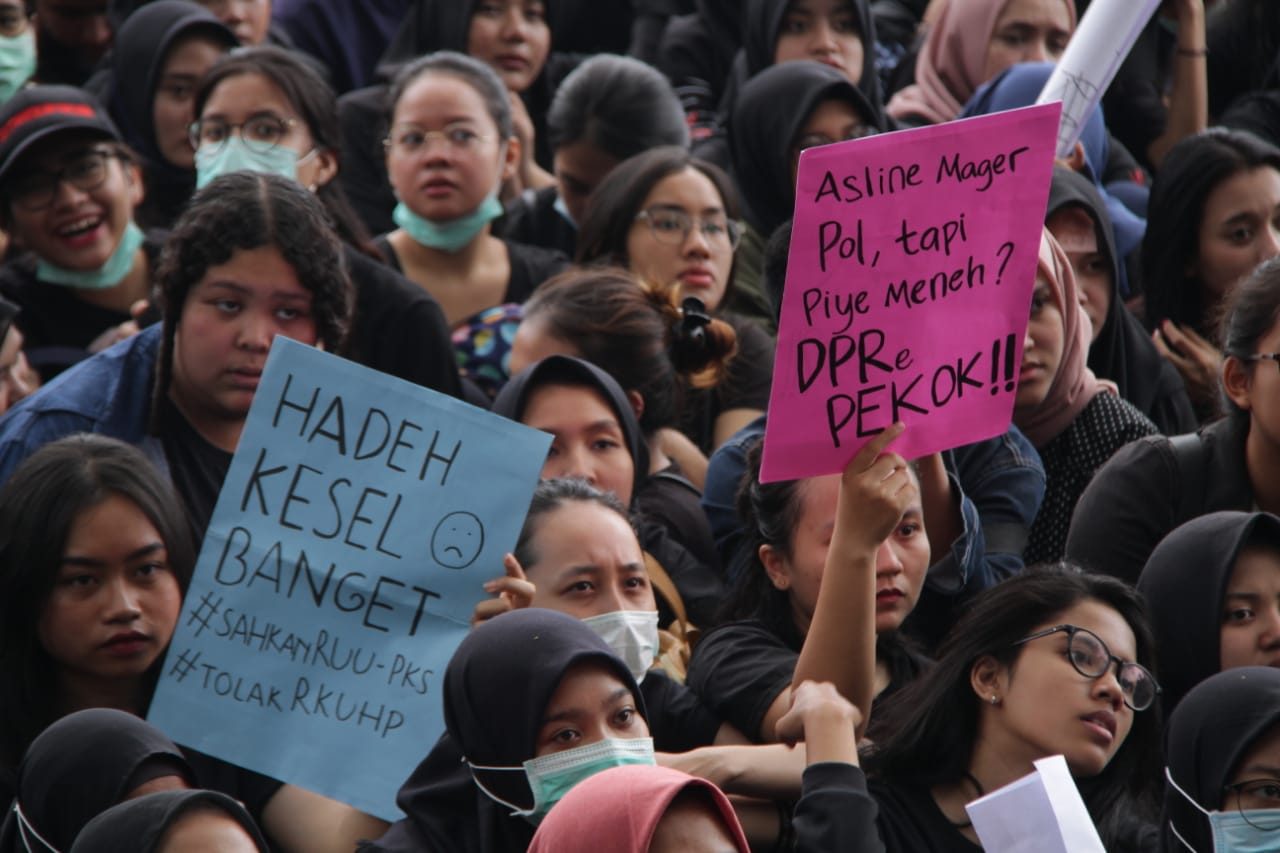 HADEH
KESEL
BANGET
#SAHKANRUU-PKS
#TOLAKRKUHP
Asline Mager
Pol, tapi
Piye Meneh?
DPRe
PEKOK!!